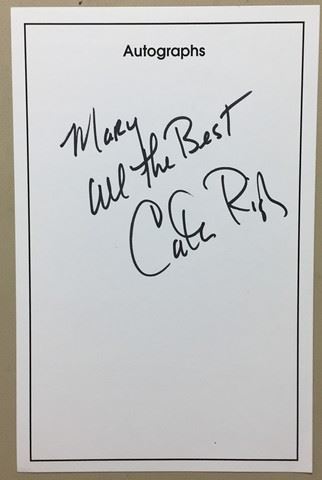 Autographs
Mary
All the Best